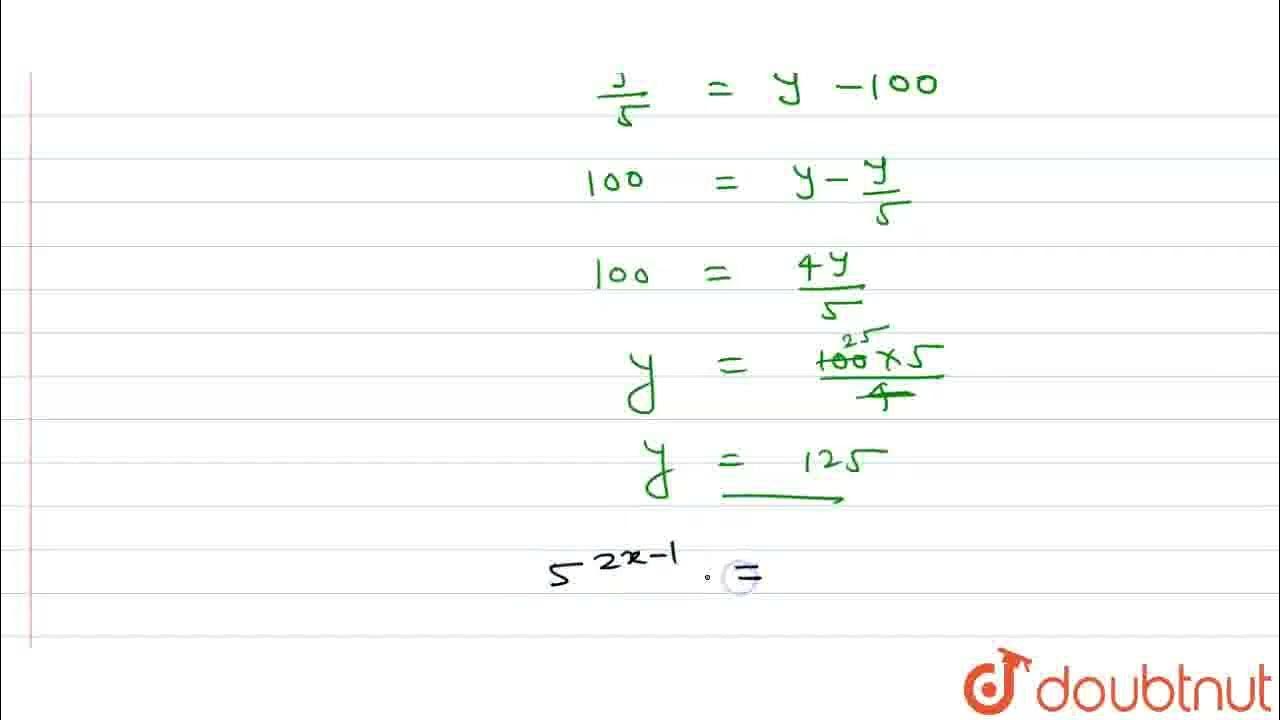 y/5 = y - 100
100 = y - y/5
100 = 4y/5
y = 100 25 × 5/4
y = 125
5^{2x-1} . =
doubtnut